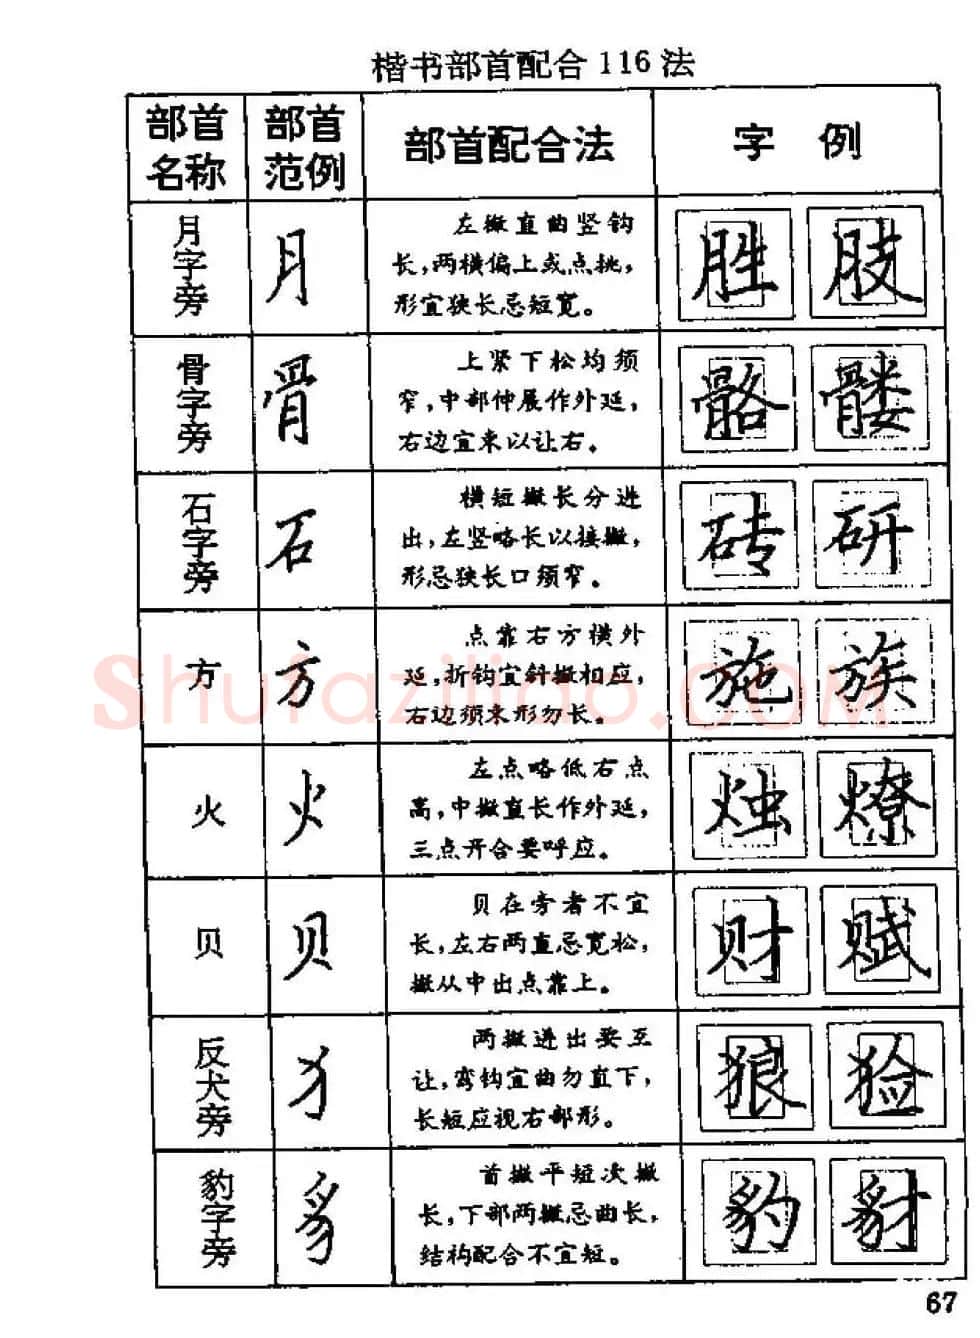 楷书部首配合116法
部首名称 部首范例 部首配合法 字例
月字旁 月 左撇直曲竖钩
长，两横偏上或点挑，
形宜狭长忌短宽。
胜 肢
骨字旁 骨 上紧下松均须
窄，中部伸展作外延，
右边宜束以让右。
骼 髅
石字旁 石 横短撇长分进
出，左竖略长以接撇，
形忌狭长口须窄。
砖 研
方 方 点靠右方横外
延，折钩宜斜撇相应，
右边须束形勿长。
施 族
火 火 左点略低右点
高，中撇直长作外延，
三点开合要呼应。
烛 燎
贝 贝 贝在旁者不宜
长，左右两直忌宽松，
撇从中出点靠上。
财 赋
反犬旁 犭 两撇进出要互
让，弯钩宜曲勿直下，
长短应视右部形。
狼 猃
豹字旁 豸 首撇平短次撇
长，下部两撇忌曲长，
结构配合不宜短。
豹 豺
67
Shufaziliao.COM